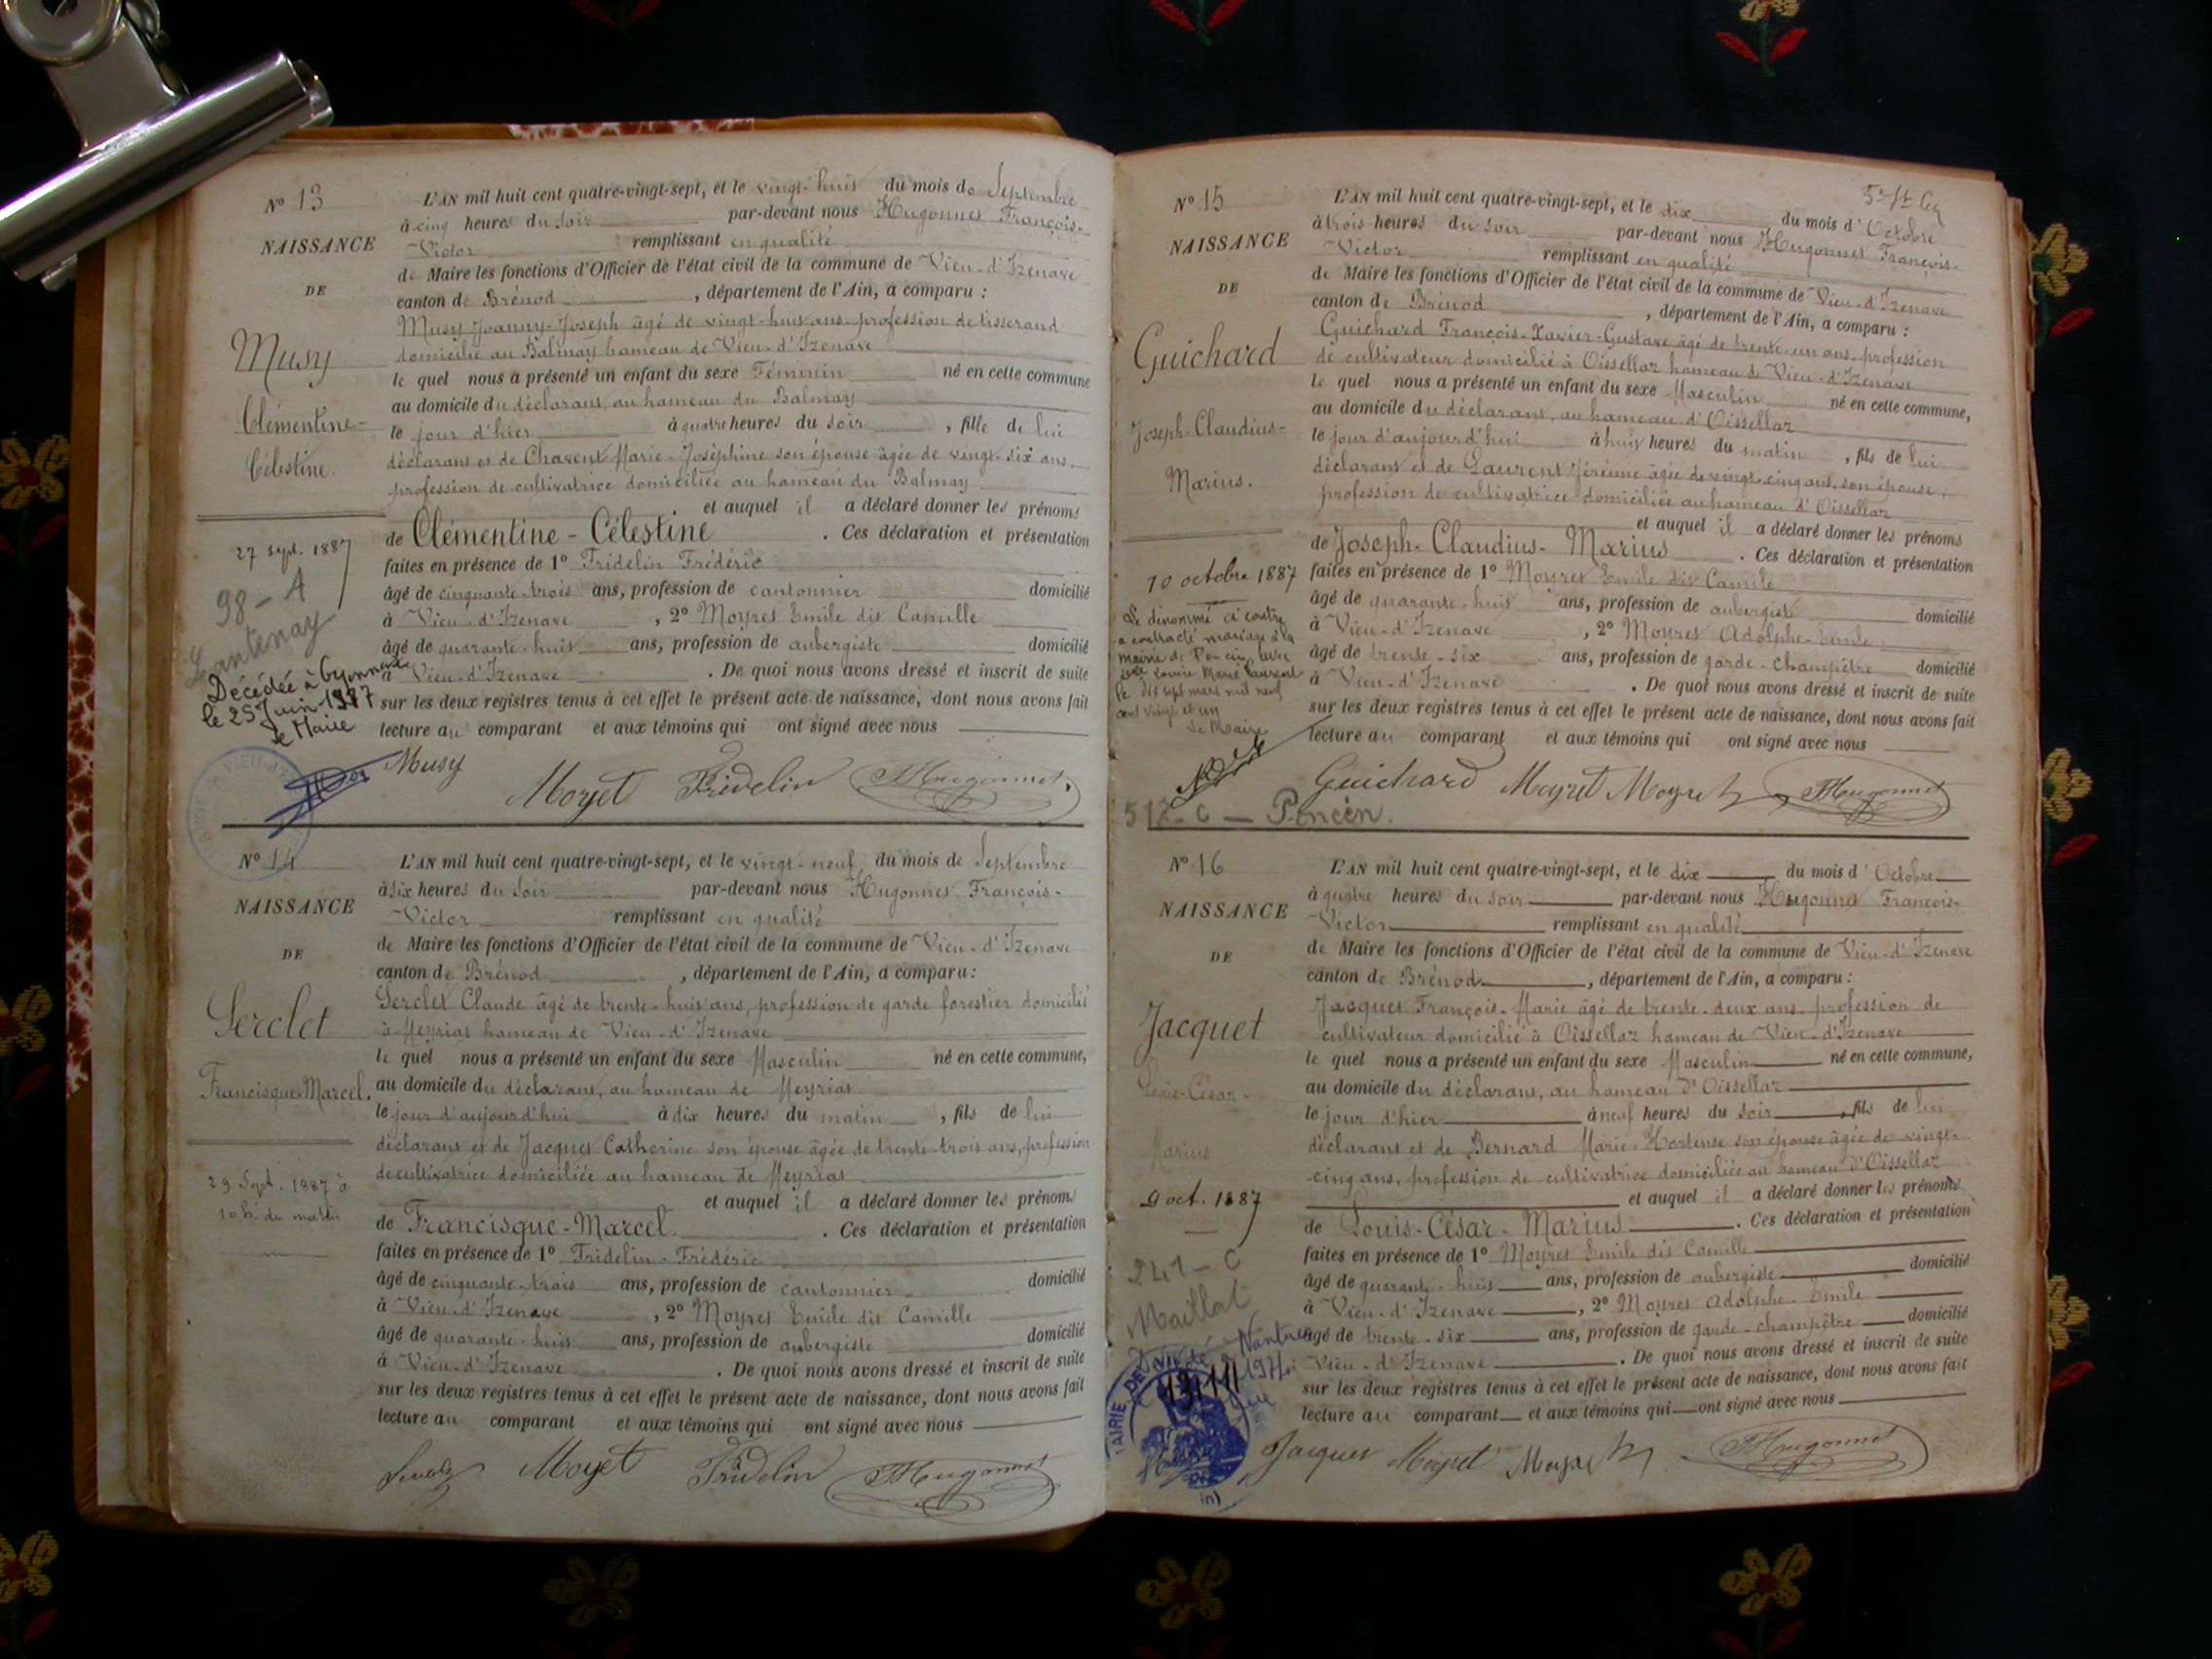 N° 13
NAISSANCE
DE
Musy
Clémentine-
Célestine.
27 sept. 1887
98 - A
Lantenay
Décédée à
le 25 Juin 19
le Maire
L'AN mil huit cent quatre-vingt-sept, et le vingt-huit du mois de Septembre
à cinq heures du soir par-devant nous Hugonnet François-
Victor remplissant en qualité
de Maire les fonctions d'Officier de l'état civil de la commune de Vieu-d'Izenave
canton de Brénod, département de l'Ain, a comparu :
Musy Joanny-Joseph âgé de vingt-huit ans profession de tisserand
domicilié au Balmay hameau de Vieu-d'Izenave
le quel nous a présenté un enfant du sexe Féminin né en cette commune
au domicile du déclarant, au hameau du Balmay
le jour d'hier à quatre heures du soir, fille de lui
déclarant et de Chavent Marie-Joséphine son épouse âgée de vingt-six ans,
profession de cultivatrice domiciliée au hameau du Balmay
et auquel il a déclaré donner les prénoms
de Clémentine-Célestine. Ces déclaration et présentation
faites en présence de 1° Fridelin Frédéric
âgé de cinquante-trois ans, profession de cantonnier domicilié
à Vieu-d'Izenave, 2° Moyret Emile dit Camille
âgé de quarante-huit ans, profession de aubergiste domicilié
à Vieu-d'Izenave. De quoi nous avons dressé et inscrit de suite
sur les deux registres tenus à cet effet le présent acte de naissance, dont nous avons fait
lecture au comparant et aux témoins qui ont signé avec nous
Musy Moyret Fridelin Hugonnet
N° 14
NAISSANCE
DE
Serclet
Francisque-Marcel.
29 Sept. 1887 à
10 h. du matin
L'AN mil huit cent quatre-vingt-sept, et le vingt-neuf du mois de Septembre
à six heures du soir par-devant nous Hugonnet François-
Victor remplissant en qualité
de Maire les fonctions d'Officier de l'état civil de la commune de Vieu-d'Izenave
canton de Brénod, département de l'Ain, a comparu :
Serclet Claude âgé de trente-huit ans, profession de garde forestier domicilié
à Meyriat hameau de Vieu-d'Izenave
le quel nous a présenté un enfant du sexe Masculin né en cette commune,
au domicile du déclarant, au hameau de Meyriat
le jour d'aujourd'hui à dix heures du matin, fils de lui
déclarant et de Jacquet Catherine son épouse âgée de trente-trois ans, profession
de cultivatrice domiciliée au hameau de Meyriat
et auquel il a déclaré donner les prénoms
de Francisque-Marcel. Ces déclaration et présentation
faites en présence de 1° Fridelin-Frédéric
âgé de cinquante-trois ans, profession de cantonnier domicilié
à Vieu-d'Izenave, 2° Moyret Emile dit Camille
âgé de quarante-huit ans, profession de aubergiste domicilié
à Vieu-d'Izenave. De quoi nous avons dressé et inscrit de suite
sur les deux registres tenus à cet effet le présent acte de naissance, dont nous avons fait
lecture au comparant et aux témoins qui ont signé avec nous
Moyret Fridelin Hugonnet
N° 15
NAISSANCE
DE
Guichard
Joseph-Claudius-
Marius.
10 octobre 1887
Le dénommé ci contre
a contracté mariage à la
mairie de Poncin, avec
Louise Marie Laurent
le dix sept mars mil neuf
cent vingt et un
Le Maire
512 - C - Poncin.
L'AN mil huit cent quatre-vingt-sept, et le dix du mois d'Octobre
à trois heures du soir par-devant nous Hugonnet François-
Victor remplissant en qualité
de Maire les fonctions d'Officier de l'état civil de la commune de Vieu-d'Izenave
canton de Brénod, département de l'Ain, a comparu :
Guichard François-Xavier-Gustave âgé de trente-un ans profession
de cultivateur domicilié à Oissellaz hameau de Vieu-d'Izenave
le quel nous a présenté un enfant du sexe Masculin né en cette commune,
au domicile du déclarant, au hameau d'Oissellaz
le jour d'aujourd'hui à huit heures du matin, fils de lui
déclarant et de Laurent Jérénne âgée de vingt-cinq ans, son épouse,
profession de cultivatrice domiciliée au hameau d'Oissellaz
et auquel il a déclaré donner les prénoms
de Joseph-Claudius-Marius. Ces déclaration et présentation
faites en présence de 1° Moyret Emile dit Camile
âgé de quarante-huit ans, profession de aubergiste domicilié
à Vieu-d'Izenave, 2° Moyret Adolphe-Emile
âgé de trente-six ans, profession de garde-champêtre domicilié
à Vieu-d'Izenave. De quoi nous avons dressé et inscrit de suite
sur les deux registres tenus à cet effet le présent acte de naissance, dont nous avons fait
lecture au comparant et aux témoins qui ont signé avec nous
Guichard Moyret Moyret Hugonnet
N° 16
NAISSANCE
DE
Jacquet
Louis-César-
Marius
9 oct. 1887
241 - C
Maillat
L'AN mil huit cent quatre-vingt-sept, et le dix du mois d'Octobre
à quatre heures du soir par-devant nous Hugonnet François-
Victor remplissant en qualité
de Maire les fonctions d'Officier de l'état civil de la commune de Vieu-d'Izenave
canton de Brénod, département de l'Ain, a comparu :
Jacquet François-Marie âgé de trente-deux ans, profession de
cultivateur domicilié à Oissellaz hameau de Vieu-d'Izenave
le quel nous a présenté un enfant du sexe Masculin né en cette commune,
au domicile du déclarant, au hameau d'Oissellaz
le jour d'hier à neuf heures du soir, fils de lui
déclarant et de Bernard Marie-Hortense son épouse âgée de vingt-
cinq ans, profession de cultivatrice domiciliée au hameau d'Oissellaz
et auquel il a déclaré donner les prénoms
de Louis-César-Marius. Ces déclaration et présentation
faites en présence de 1° Moyret Emile dit Camille
âgé de quarante-huit ans, profession de aubergiste domicilié
à Vieu-d'Izenave, 2° Moyret Adolphe-Emile
âgé de trente-six ans, profession de garde-champêtre domicilié
Vieu-d'Izenave. De quoi nous avons dressé et inscrit de suite
sur les deux registres tenus à cet effet le présent acte de naissance, dont nous avons fait
lecture au comparant et aux témoins qui ont signé avec nous
Jacquet Moyret Moyret Hugonnet